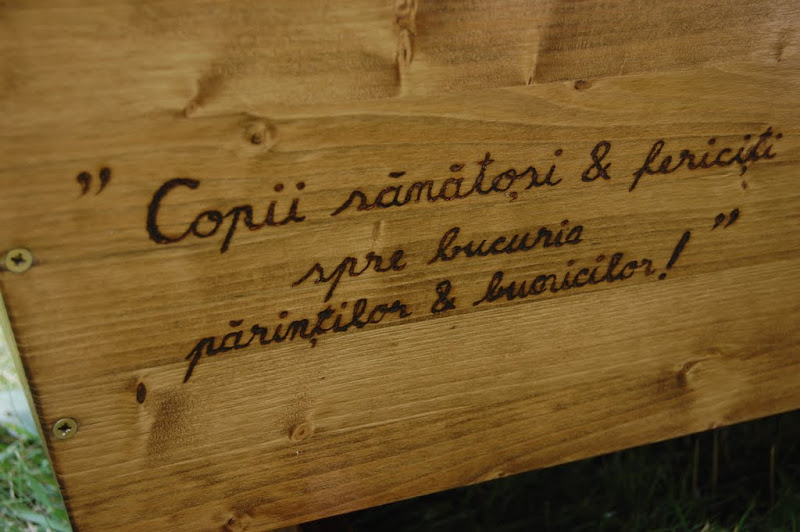 " Copii sănătoși & fericiți
spre bucuria
părinților & bunicilor! "